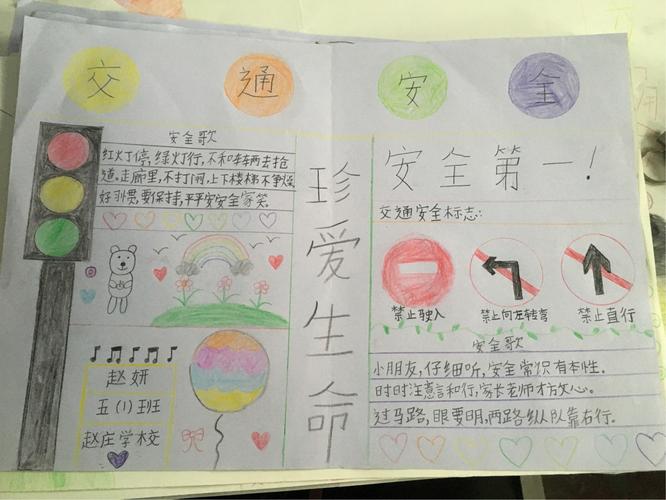 交通安全
安全歌
红灯停,绿灯行,不和车辆去抢
道。走廊里,不打闹,上下楼梯不争
好习惯,要保持,平平安安全家笑。
赵妍
五(1)班
赵庄学校
珍爱生命
安全第一!
交通安全标志:
禁止驶入
禁止向左转弯
禁止直行
安全歌
小朋友,仔细听,安全常识有本性。
时时注意言和行,家长老师才放心。
过马路,眼要明,两路纵队靠右行。